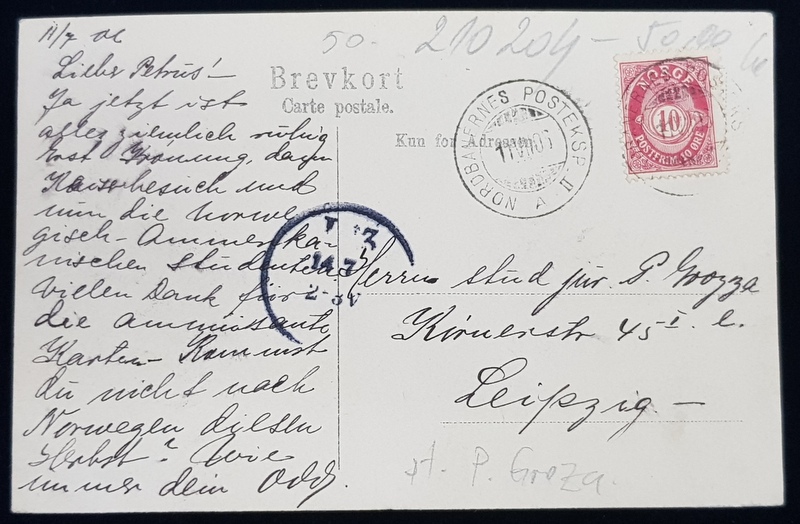 11/7 06
50.- 210204- 50,00
Lieber Petrus!-
Ja jetzt ist
alles ziemlich ruhig
Erst Krönung, dann
Kaiserbesuch und
nun die norwe
gisch-Ammerika-
nischen Studenten
Vielen Dank für
die ammüsante
Karten- Kommst
du nicht nach
Norwegen diesen
Herbst? Wie
immer dein Odd.
Brevkort
Carte postale.
Kun for Adressen
NORDBANERNES POSTEKSP. II A
11 VII 06
NORGE
10
POSTFRIM. 10 ORE
14.7
Herrn stud jur. P. Grozza
Körnerstr 45 I. l.
Leipzig-
P. Groza.